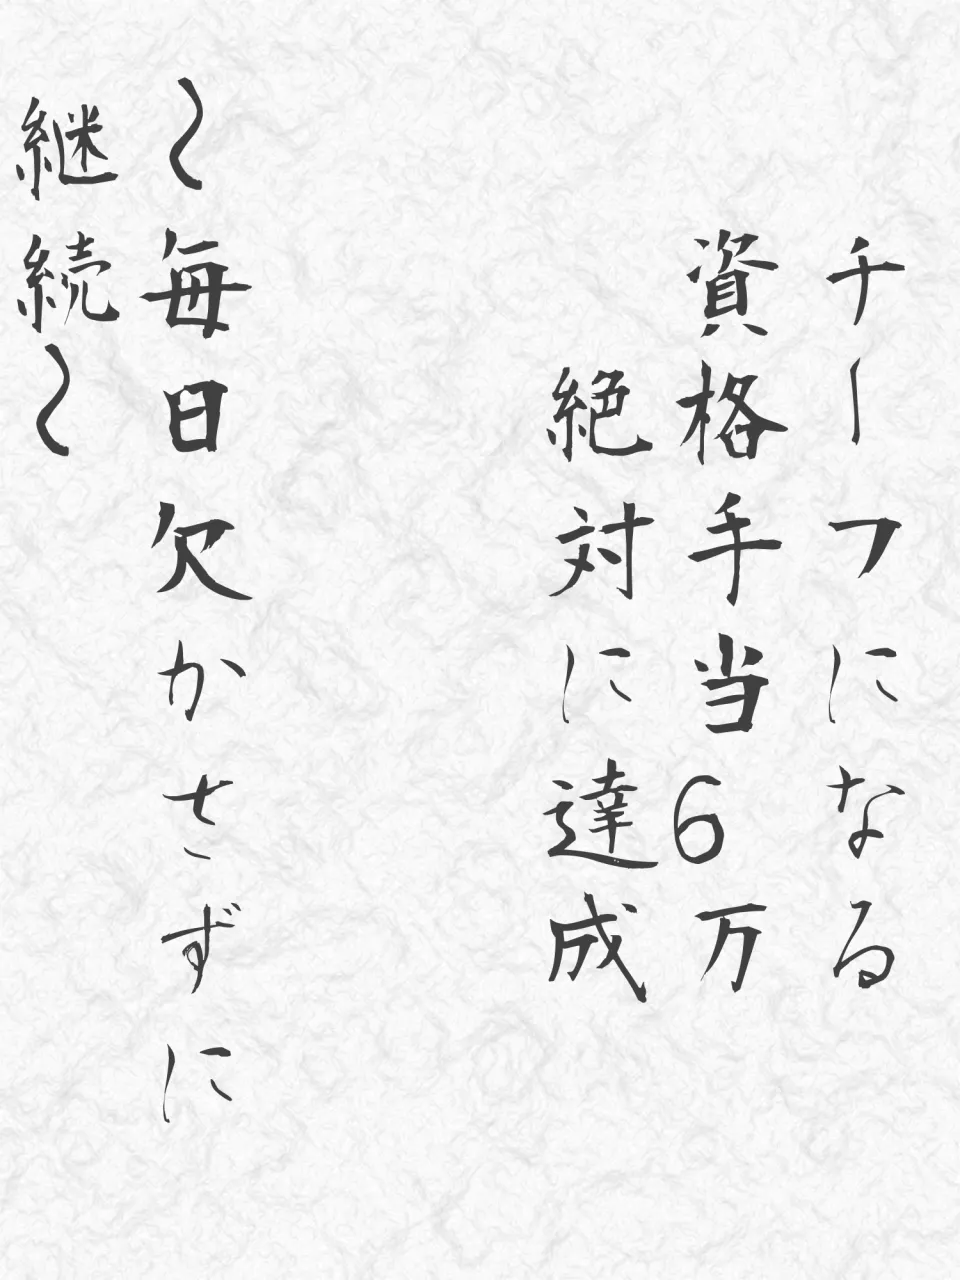 チーフになる
資格手当6万
絶対に達成
～毎日欠かさずに
継続～